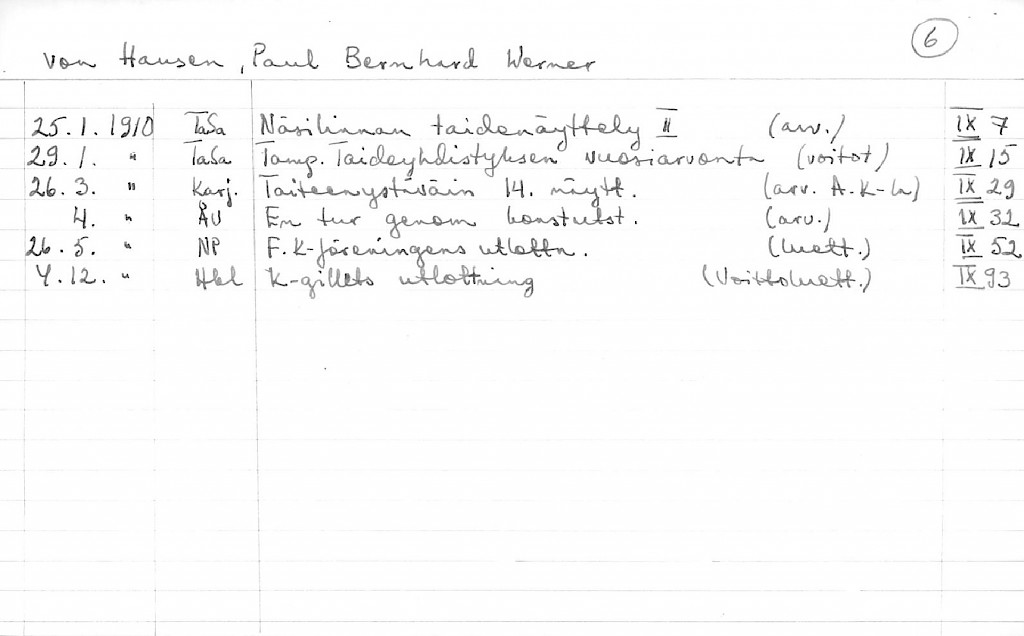 6
von Hausen, Paul Bernhard Werner
25.1. 1910 TaSa Näsilinnan taidenäyttely II (arv.) IX 7
29.1. " TaSa Tamp. Taideyhdistyksen vuosiarvonta (voitot) IX 15
26.3. " Karj. Taiteenystäväin 14. näytt. (arv. A.K-ln) IX 29
4. " ÅU En tur genom konstutst. (arv.) IX 32
26.5. " NP F.K-föreningens utlottn. (luett.) IX 52
4.12. " Hbl K-gillets utlottning (Voittoluett.) IX 93